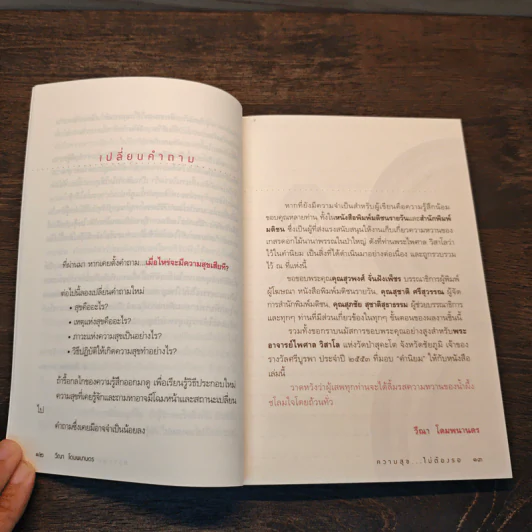 เปลี่ยนคำถาม
ที่ผ่านมา หากเคยตั้งคำถาม...เมื่อไหร่จะมีความสุขเสียที?
ต่อไปนี้ลองเปลี่ยนคำถามใหม่
• สุขคืออะไร?
• เหตุแห่งสุขคืออะไร?
• ภาวะแห่งความสุขเป็นอย่างไร?
• วิธีปฏิบัติให้เกิดความสุขทำอย่างไร?
ถ้ารื้อกลไกของความรู้สึกออกมาดู เพื่อเรียนรู้วิธีประกอบใหม่
ความสุขที่เคยรู้จักและถามหาอาจมีโฉมหน้าและสถานะเปลี่ยน
ไป
คำถามซึ่งเคยมีอาจจำเป็นน้อยลง
๑๒ วีณา โดมพนานดร
หากที่ยังมีความจำเป็นสำหรับผู้เขียนคือความรู้สึกน้อม
ขอบคุณหลายท่าน ทั้งในหนังสือพิมพ์มติชนรายวันและสำนักพิมพ์
มติชน ซึ่งเป็นผู้ส่งแรงสนับสนุนให้งานเก็บเกี่ยวความหวานของ
เกสรดอกไม้นานาพรรณในป่าใหญ่ ดังที่ท่านพระไพศาล วิสาโลว่า
ไว้ในคำนิยม เป็นสิ่งที่ได้ดำเนินมาอย่างต่อเนื่อง และถูกรวบรวม
ไว้ ณ ที่แห่งนี้
ขอขอบพระคุณคุณสุวพงศ์ จั่นฝังเพ็ชร บรรณาธิการผู้พิมพ์
ผู้โฆษณา หนังสือพิมพ์มติชนรายวัน, คุณสุชาติ ศรีสุวรรณ ผู้จัด
การสำนักพิมพ์มติชน, คุณสุภชัย สุชาติสุธาธรรม ผู้ช่วยบรรณาธิการ
และทุกๆ ท่านที่มีส่วนเกี่ยวข้องในทุกๆ ขั้นตอนของผลงานชิ้นนี้
รวมทั้งขอกราบนมัสการขอบพระคุณอย่างสูงสำหรับพระ
อาจารย์ไพศาล วิสาโล แห่งวัดป่าสุคะโต จังหวัดชัยภูมิ เจ้าของ
รางวัลศรีบูรพา ประจำปี ๒๕๕๓ ที่มอบ "คำนิยม" ให้กับหนังสือ
เล่มนี้
วาดหวังว่าผู้เสพทุกท่านจะได้ลิ้มรสความหวานของน้ำผึ้ง
ชโลมใจโดยถ้วนทั่ว
วีณา โดมพนานดร
ความสุข...ไม่ต้องรอ ๑๓